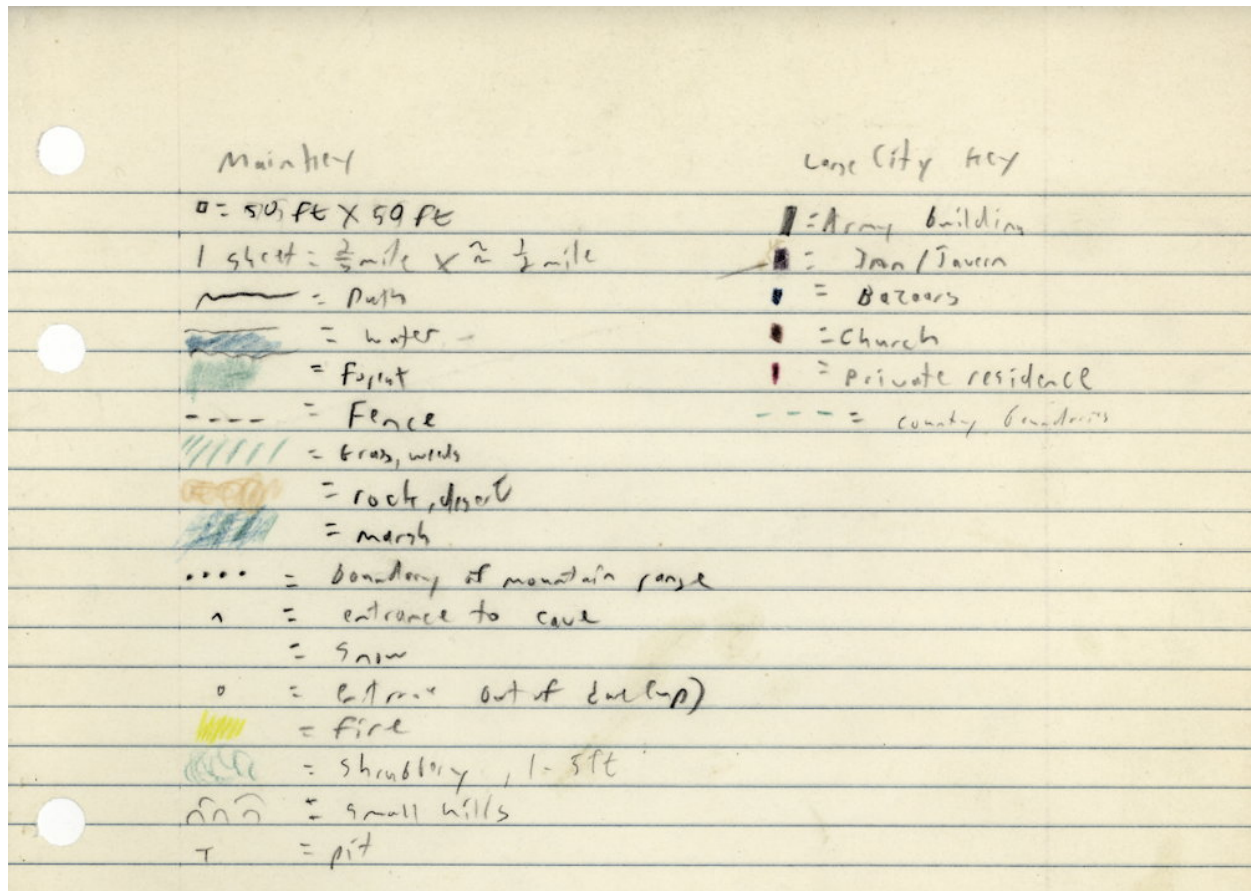 Main key
= 50 ft X 50 ft
1 sheet = 2/3 mile x ≈ 1/2 mile
= Path
= water
= Forest
= Fence
= Grass, weeds
= rock, desert
= marsh
= boundary of mountain range
= entrance to cave
= snow
= entrance out of (up)
= fire
= Shrubbery, 1-5ft
= small hills
T = pit
Large City key
= Army building
= Inn / Tavern
= Bazaars
= Church
= private residence
= country boundaries